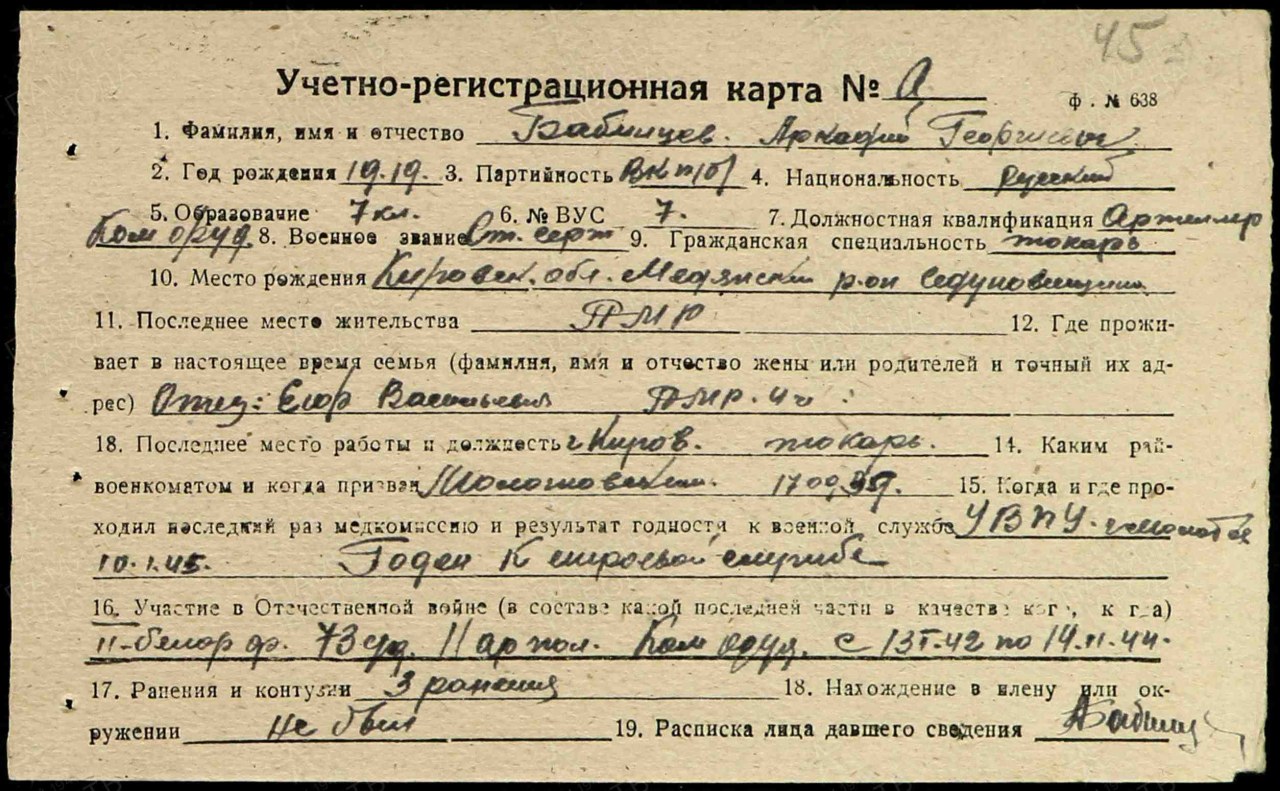 45
Учетно-регистрационная карта № А
ф. № 638
1. Фамилия, имя и отчество Бабинцев. Аркадий Георгиевич
2. Год рождения 1919. 3. Партийность ВКП(б) 4. Национальность русский
5. Образование 7 кл. 6. № ВУС 7. 7. Должностная квалификация Артиллер
Ком оруд. 8. Военное звание Ст. серж 9. Гражданская специальность токарь
10. Место рождения Кировск. обл. Медянский р-он
11. Последнее место жительства 12. Где прожи-
вает в настоящее время семья (фамилия, имя и отчество жены или родителей и точный их ад-
рес) Отец: Егор Васильевич
18. Последнее место работы и должность г Киров. токарь. 14. Каким рай-
военкоматом и когда призван Молотовским. 39г. 15. Когда и где про-
ходил последний раз медкомиссию и результат годности к военной службе УВПУ.
10.1.45. Годен к строевой службе
16. Участие в Отечественной войне (в составе какой последней части в качестве кого, когда)
II-белор ф. 73 сд. 11 ар пол. Ком оруд. с 13 I-42 по 14.II.44.
17. Ранения и контузии 3 ранения 18. Нахождение в плену или ок-
ружении не был 19. Расписка лица давшего сведения